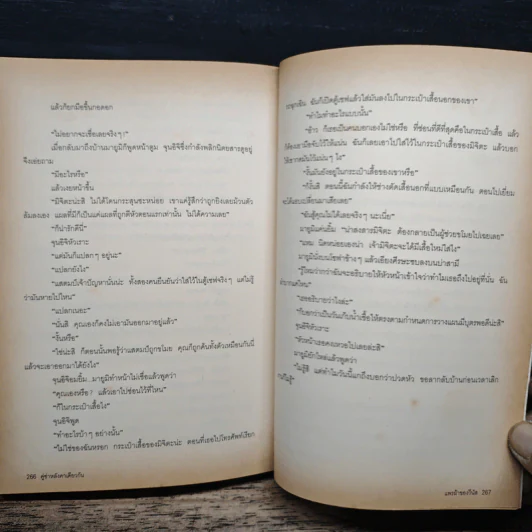 แล้วก็ยกมือขึ้นกอดอก
“ไม่อยากจะเชื่อเลยจริงๆ!”
เมื่อกลับมาถึงบ้านมายูมิก็พูดหน้าตูม จุนอิจิซึ่งกำลังพลิกนิตยสารดูอยู่
จึงเอ่ยถาม
“มีอะไรหรือ”
แล้วเงยหน้าขึ้น
“มิจิตะน่ะสิ ไม่ได้โดนกระสุนซะหน่อย เขาแค่รู้สึกว่าถูกยิงเลยม้วนตัว
ล้มลงเอง แผลที่มีก็เป็นแค่แผลที่ถูกตีหัวตอนแรกเท่านั้น ไม่ได้ความเลย”
“ก็น่ารักดีนี่”
จุนอิจิหัวเราะ
“แต่มันก็แปลกๆ อยู่นะ”
“แปลกยังไง”
“แสตมป์เจ้าปัญหานั่นน่ะ ทั้งสองคนยืนยันว่าใส่ไว้ในตู้เซฟจริงๆ แต่ไม่รู้
ว่ามันหายไปไหน”
“แปลกเนอะ”
“นั่นสิ คุณเองก็คงไม่เอามันออกมาอยู่แล้ว”
“งั้นหรือ”
“ใช่น่ะสิ ก็ตอนนั้นพอรู้ว่าแสตมป์ถูกขโมย คุณก็ถูกค้นทั้งตัวเหมือนกันนี่
แล้วจะเอาออกมาได้ยังไง”
จุนอิจิอมยิ้ม มายูมิทำหน้าไม่เชื่อแล้วพูดว่า
“คุณเองหรือ? แล้วเอาไปซ่อนไว้ที่ไหน”
“ก็ในกระเป๋าเสื้อไง”
จุนอิจิพูด
“ทำอะไรบ้าๆ อย่างนั้น”
“ไม่ใช่ของฉันหรอก กระเป๋าเสื้อของมิจิตะน่ะ ตอนที่เธอไปโทรศัพท์เรียก
266 คู่ซ่าหลังคาเดียวกัน
ฉันก็เปิดตู้เซฟแล้วใส่มันลงไปในกระเป๋าเสื้อนอกของเขา”
“ทำไมทำอะไรแบบนั้น”
“อ้าว ก็เธอเป็นคนบอกเองไม่ใช่หรือ ที่ซ่อนที่ดีที่สุดคือในกระเป๋าเสื้อ แล้ว
ฉันก็เลยเอาไปใส่ไว้ในกระเป๋าเสื้อของมิจิตะ แล้วบอก
“งั้นมันยังอยู่ในกระเป๋าเสื้อของเขาหรือ”
“ก็ใช่สิ ตอนนี้ฉันกำลังให้ช่างตัดเสื้อนอกที่แบบเหมือนกัน ตอนไปเยี่ยม
“ฉันสู้คุณไม่ได้เลยจริงๆ นะเนี่ย”
มายูมิแค่นยิ้ม “น่าสงสารมิจิตะ ต้องกลายเป็นผู้ช่วยขโมยไปเฉยเลย”
“แหม นิดหน่อยเองน่า เจ้ามิจิตะจะได้มีเสื้อใหม่ใส่ไง”
มายูมินั่งบนโซฟาข้างๆ แล้วเอียงศีรษะซบลงบนบ่าสามี
“รู้ไหมว่ากว่าฉันจะอธิบายให้หัวหน้าเข้าใจว่าทำไมเธอถึงไปอยู่ที่นั่น ฉัน
“เธออธิบายว่าไงล่ะ”
จุนอิจิหัวเราะ
“หัวหน้าเธอคงเหวอไปเลยล่ะสิ”
มายูมิยักไหล่แล้วพูดว่า
“ไม่รู้สิ แต่ทำไมวันนี้แกถึงบอกว่าปวดหัว ขอลากลับบ้านก่อนเวลาเลิก
แพะผ้าของวีนัส 267